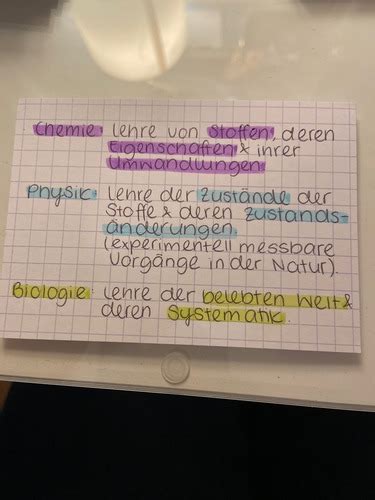 Chemie: Lehre von Stoffen, deren
Eigenschaften & ihrer
Umwandlungen
Physik: Lehre der Zustände der
Stoffe & deren Zustands-
änderungen.
(experimentell messbare
Vorgänge in der Natur).
Biologie: Lehre der belebten Welt &
deren Systematik.